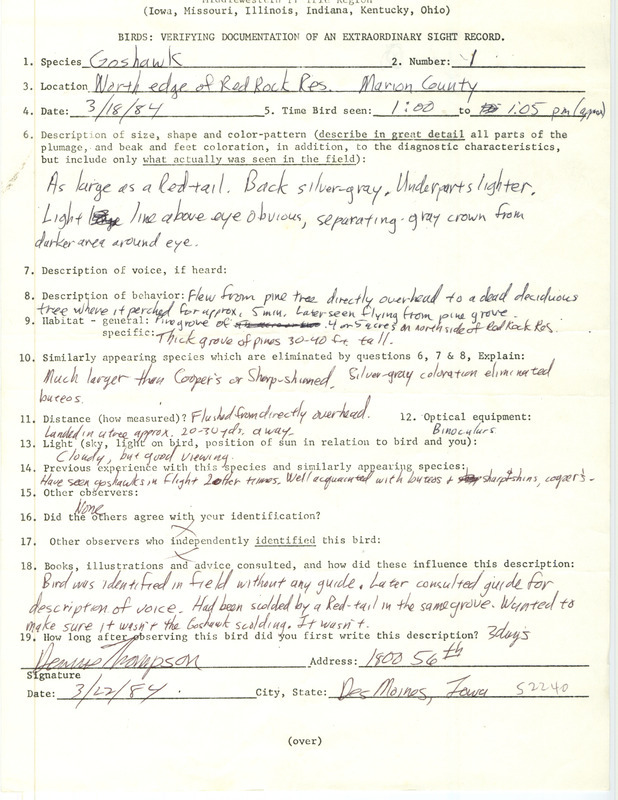 (Iowa, Missouri, Illinois, Indiana, Kentucky, Ohio)
BIRDS: VERIFYING DOCUMENTATION OF AN EXTRAORDINARY SIGHT RECORD.
1. Species Goshawk 2. Number: 1
3. Location North edge of Red Rock Res. Marion County
4. Date: 3/18/84 5. Time Bird seen: 1:00 to 1:05 pm (approx)
6. Description of size, shape and color-pattern (describe in great detail all parts of the
plumage, and beak and feet coloration, in addition, to the diagnostic characteristics,
but include only what actually was seen in the field):
As large as a Red-tail. Back silver-gray. Underparts lighter.
Light line above eye obvious, separating gray crown from
darker area around eye.
7. Description of voice, if heard:
8. Description of behavior: Flew from pine tree directly overhead to a dead deciduous
tree where it perched for approx. 5 min. Later seen flying from pine grove.
9. Habitat - general: Pine grove of 4 or 5 acres on north side of Red Rock Res.
specific: Thick grove of pines 30-40 ft. tall.
10. Similarly appearing species which are eliminated by questions 6, 7 & 8, Explain:
Much larger than Cooper's or Sharp-shinned. Silver-gray coloration eliminated
buteos.
11. Distance (how measured)? Flushed from directly overhead. 12. Optical equipment:
Landed in a tree approx. 20-30 yds. away Binoculars
13. Light (sky, light on bird, position of sun in relation to bird and you):
Cloudy, but good viewing.
14. Previous experience with this species and similarly appearing species:
Have seen goshawks in flight 2 other times. Well acquainted with buteos + sharpshins, cooper's-
15. Other observers:
None
16. Did the others agree with your identification?
17. Other observers who independently identified this bird:
18. Books, illustrations and advice consulted, and how did these influence this description:
Bird was identified in field without any guide. Later consulted guide for
description of voice. Had been scolded by a Red-tail in the same grove. Wanted to
make sure it wasn't the Goshawk scolding. It wasn't.
19. How long after observing this bird did you first write this description? 3 days
Dennis Thompson Address: 1800 56th
Signature
Date: 3/22/84 City, State: Des Moines, Iowa 52240
(over)